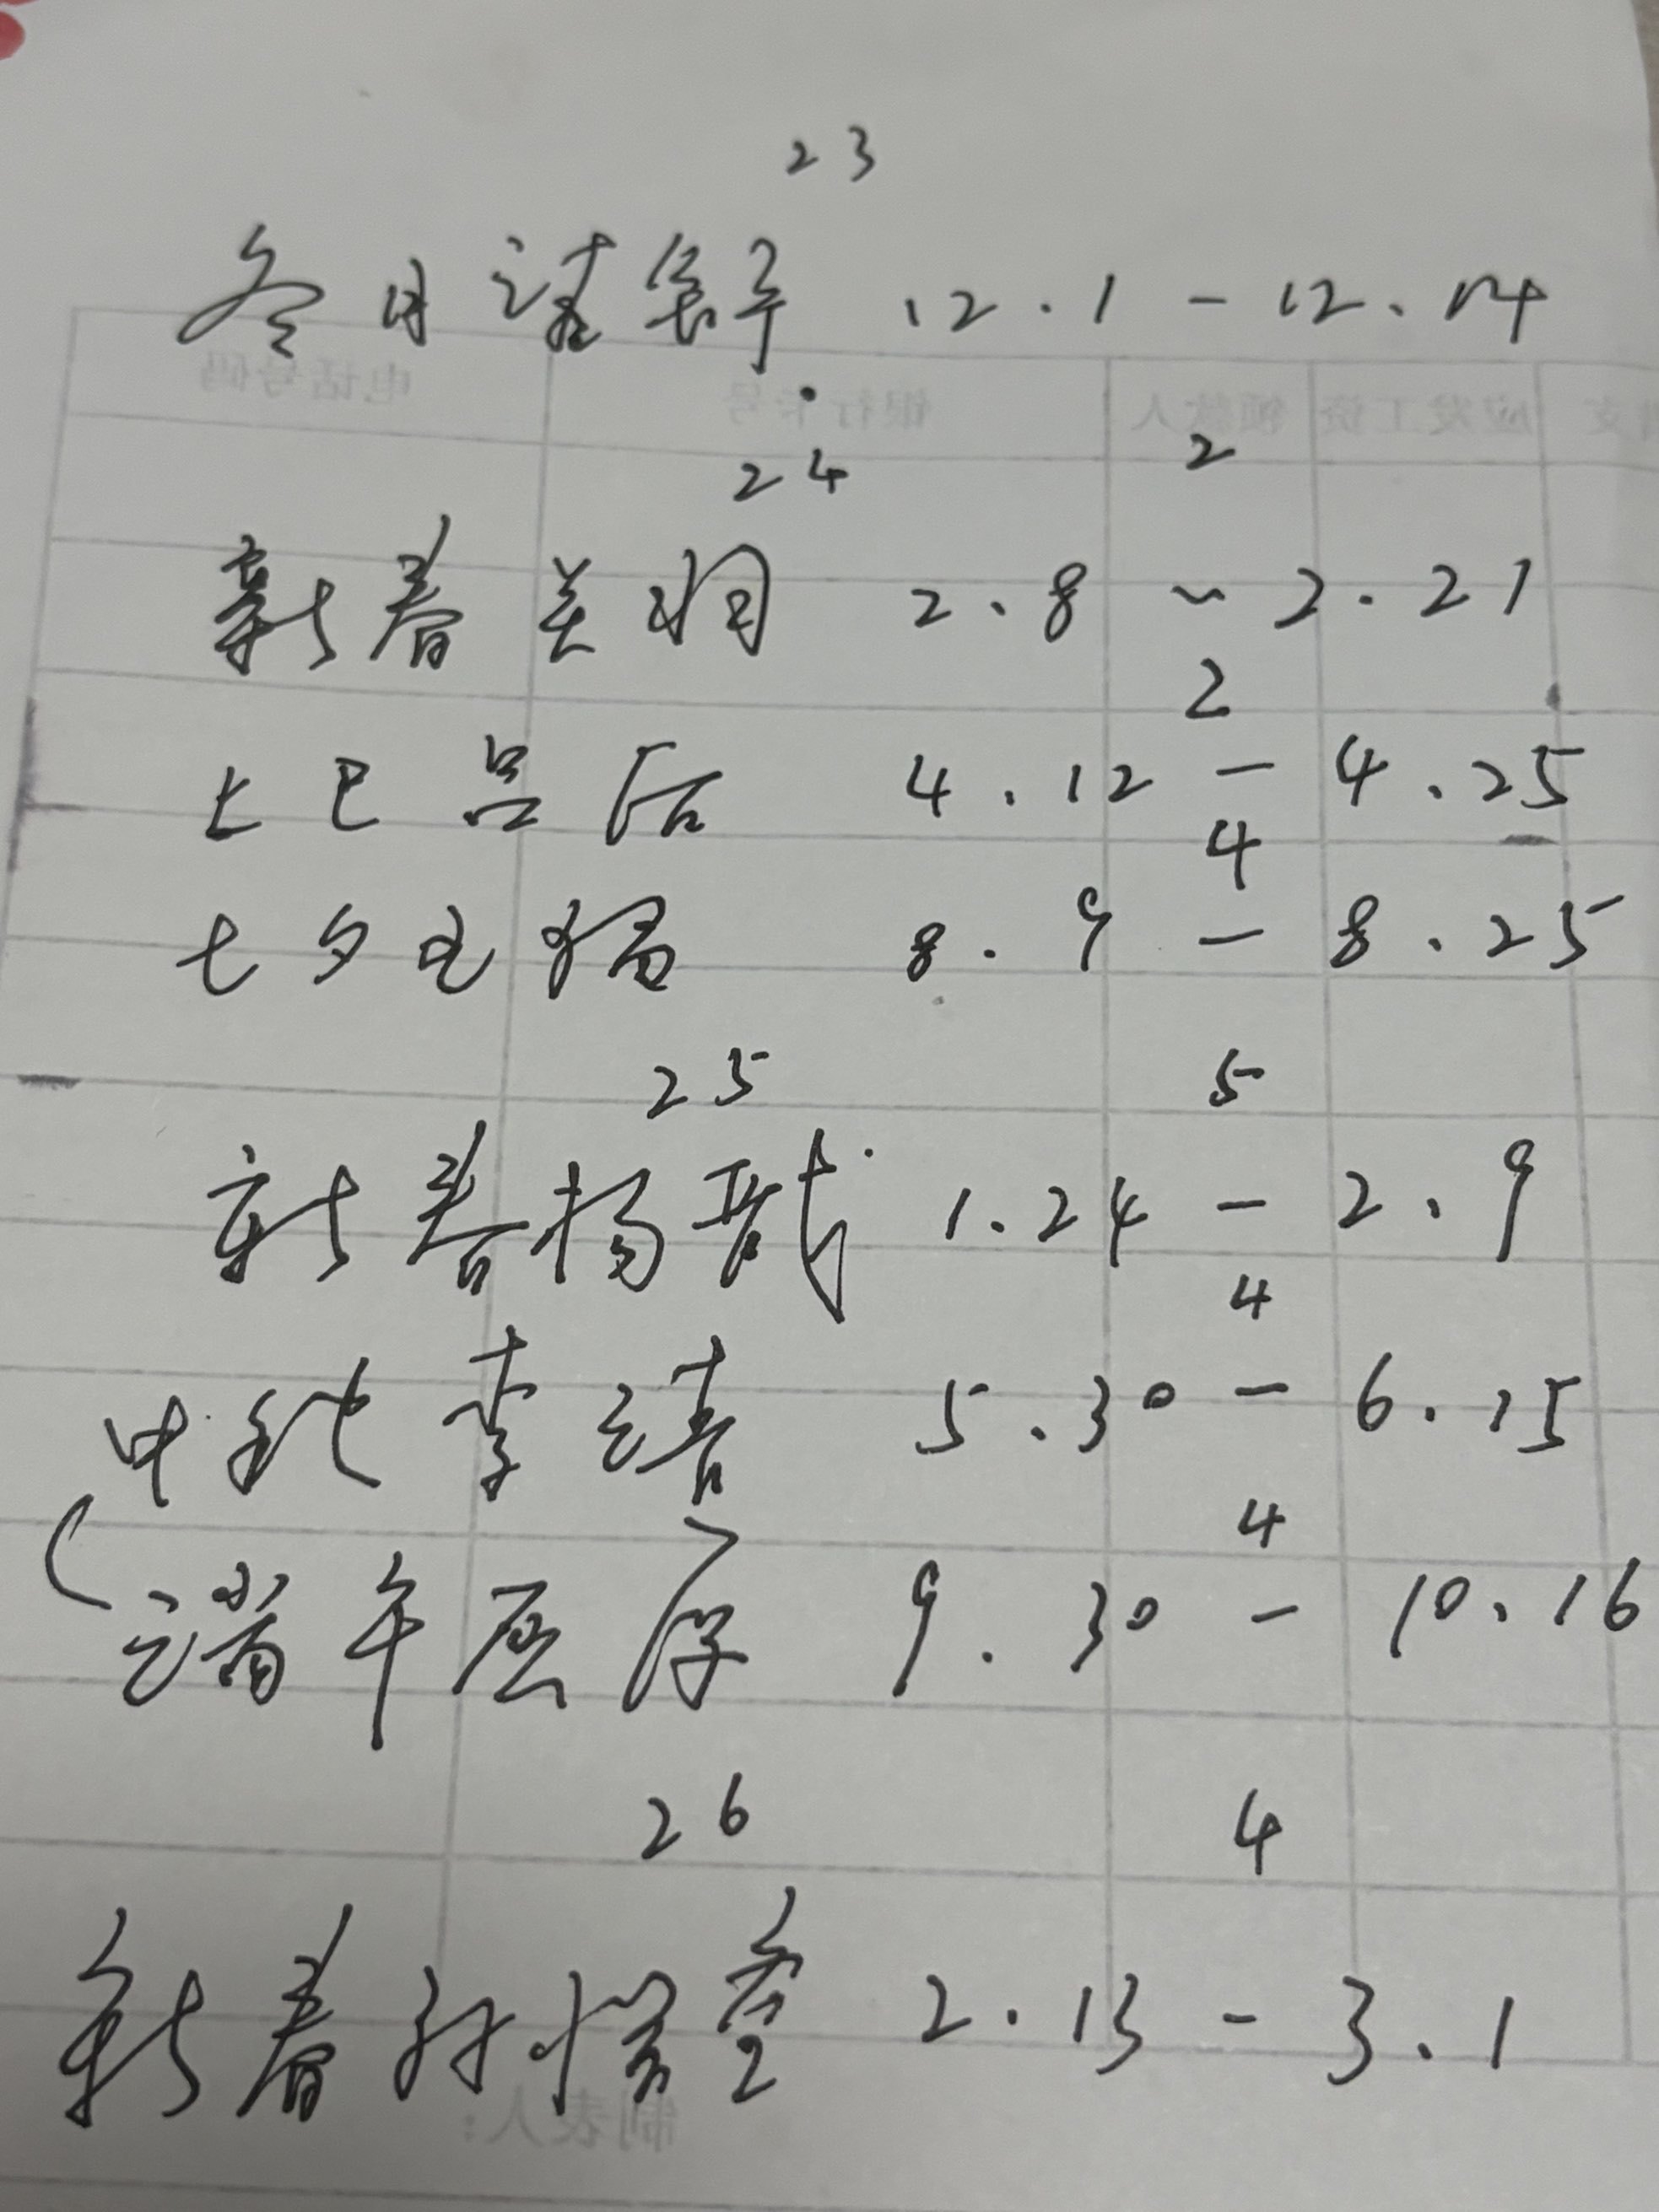 23
冬日诸葛亮 12.1-12.14
24 2
新春关羽 2.8~2.21
2
上巳吕后 4.12-4.25
4
七夕 8.9-8.25
25 5
新春杨戬 1.24-2.9
4
中秋李靖 5.30-6.15
4
端午屈原 9.30-10.16
26 4
新春孙悟空 2.13-3.1
电话号码 银行卡号 领款人 应发工资
制表人: